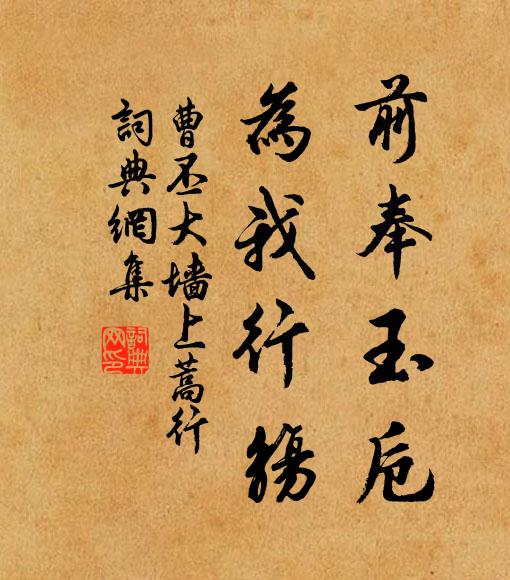 前奉玉卮
為我行觴
曹丕大墙上蒿行
詞典網集
詞典網印